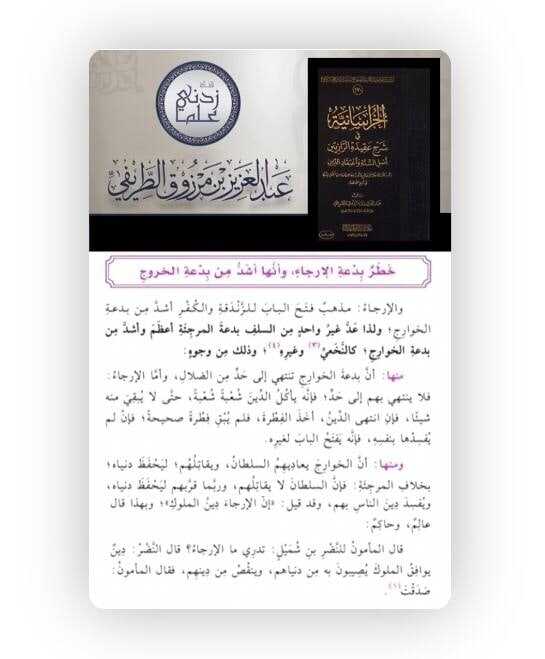 رب زدني علما
عبد العزيز بن مرزوق الطريفي
الخراسانية
في
شرح عقيدة الرازيين
خَطَرُ بِدْعةِ الإرجاءِ، وأنَّها أشدُّ مِن بِدْعةِ الخروجِ
والإرجاءُ: مذهبٌ فتَحَ البابَ للزَّنْدَقةِ والكُفْرِ أشدَّ مِن بدعةِ
الخوارجِ؛ ولذا عَدَّ غيرُ واحدٍ مِن السلفِ بدعةَ المرجِئَةِ أعظَمَ وأشدَّ مِن
بدعةِ الخوارجِ؛ كالنَّخَعيِّ(٣) وغيرِهِ(٤)؛ وذلك مِن وجوهٍ:
منها: أنَّ بدعةَ الخوارجِ تنتهي إلى حَدٍّ مِن الضلالِ، وأمَّا الإرجاءُ:
فلا ينتهي بهم إلى حَدٍّ؛ فإنَّه يأكُلُ الدِّينَ شُعْبةً شُعْبةً، حتَّى لا يُبقِيَ منه
شيئًا، فإنِ انتهى الدِّينُ، أخَذَ الفِطْرةَ، فلم يُبْقِ فِطْرةً صحيحةً؛ فإنْ لم
يُفسِدْها بنفسِهِ، فإنَّه يَفتَحُ البابَ لغيرِه.
ومنها: أنَّ الخوارجَ يعاديهِمُ السلطانُ، ويقاتِلُهُم؛ ليَحْفَظَ دنياه؛
بخلافِ المرجئةِ: فإنَّ السلطانَ لا يقاتِلُهم، وربَّما قرَّبهم ليَحْفَظَ دنياه،
ويُفسِدَ دِينَ الناسِ بهم، وقد قيل: «إنَّ الإرجاءَ دِينُ الملوكِ»؛ وبهذا قال
عالِمٌ، وحاكِمٌ:
قال المأمونُ للنَّضْرِ بنِ شُمَيْلٍ: تدري ما الإرجاءُ؟ قال النَّضْرُ: دِينٌ
يوافِقُ الملوكَ يُصِيبونَ به مِن دنياهم، وينقُصُ مِن دِينِهِم، فقال المأمونُ:
صَدَقْتَ(١).